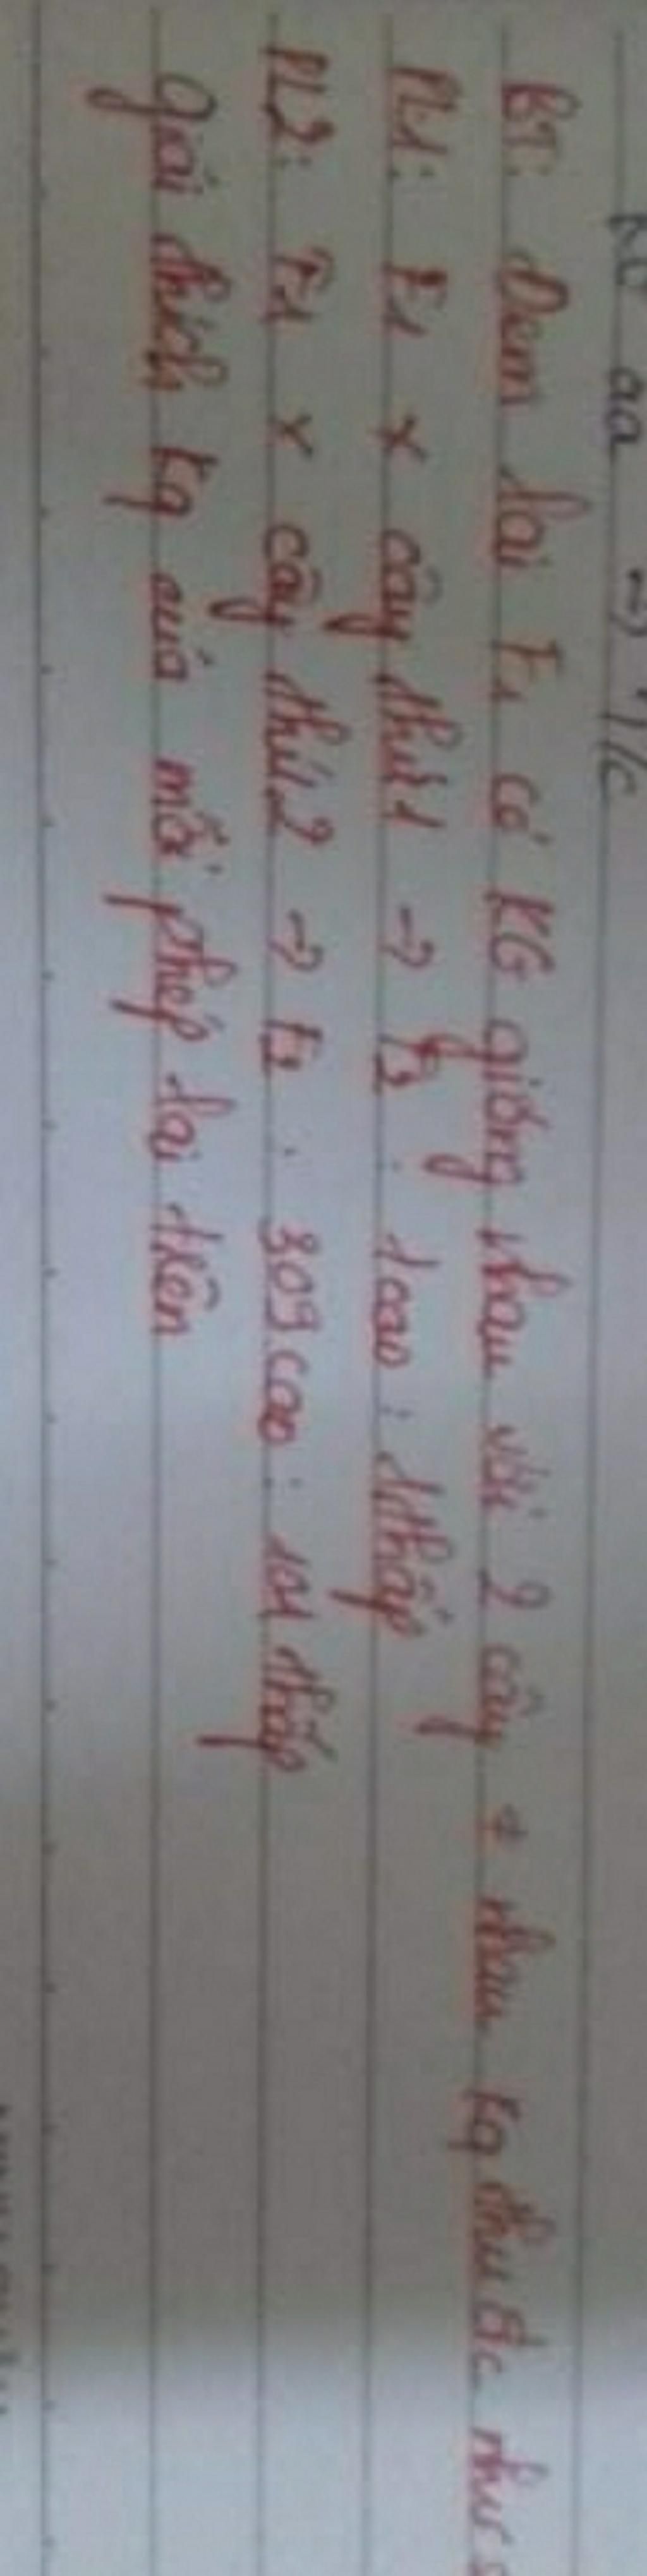 aa → T/c
BT: Đem lai F1 có KG giống nhau với 2 cây ≠ nhau kq thu đc như s
PL1: F1 x cây thứ 1 → F2 : 1 cao : 1 thấp
PL2: F1 x cây thứ 2 → F2 : 309 cao : 101 thấp
giải thích kq của mỗi phép lai trên